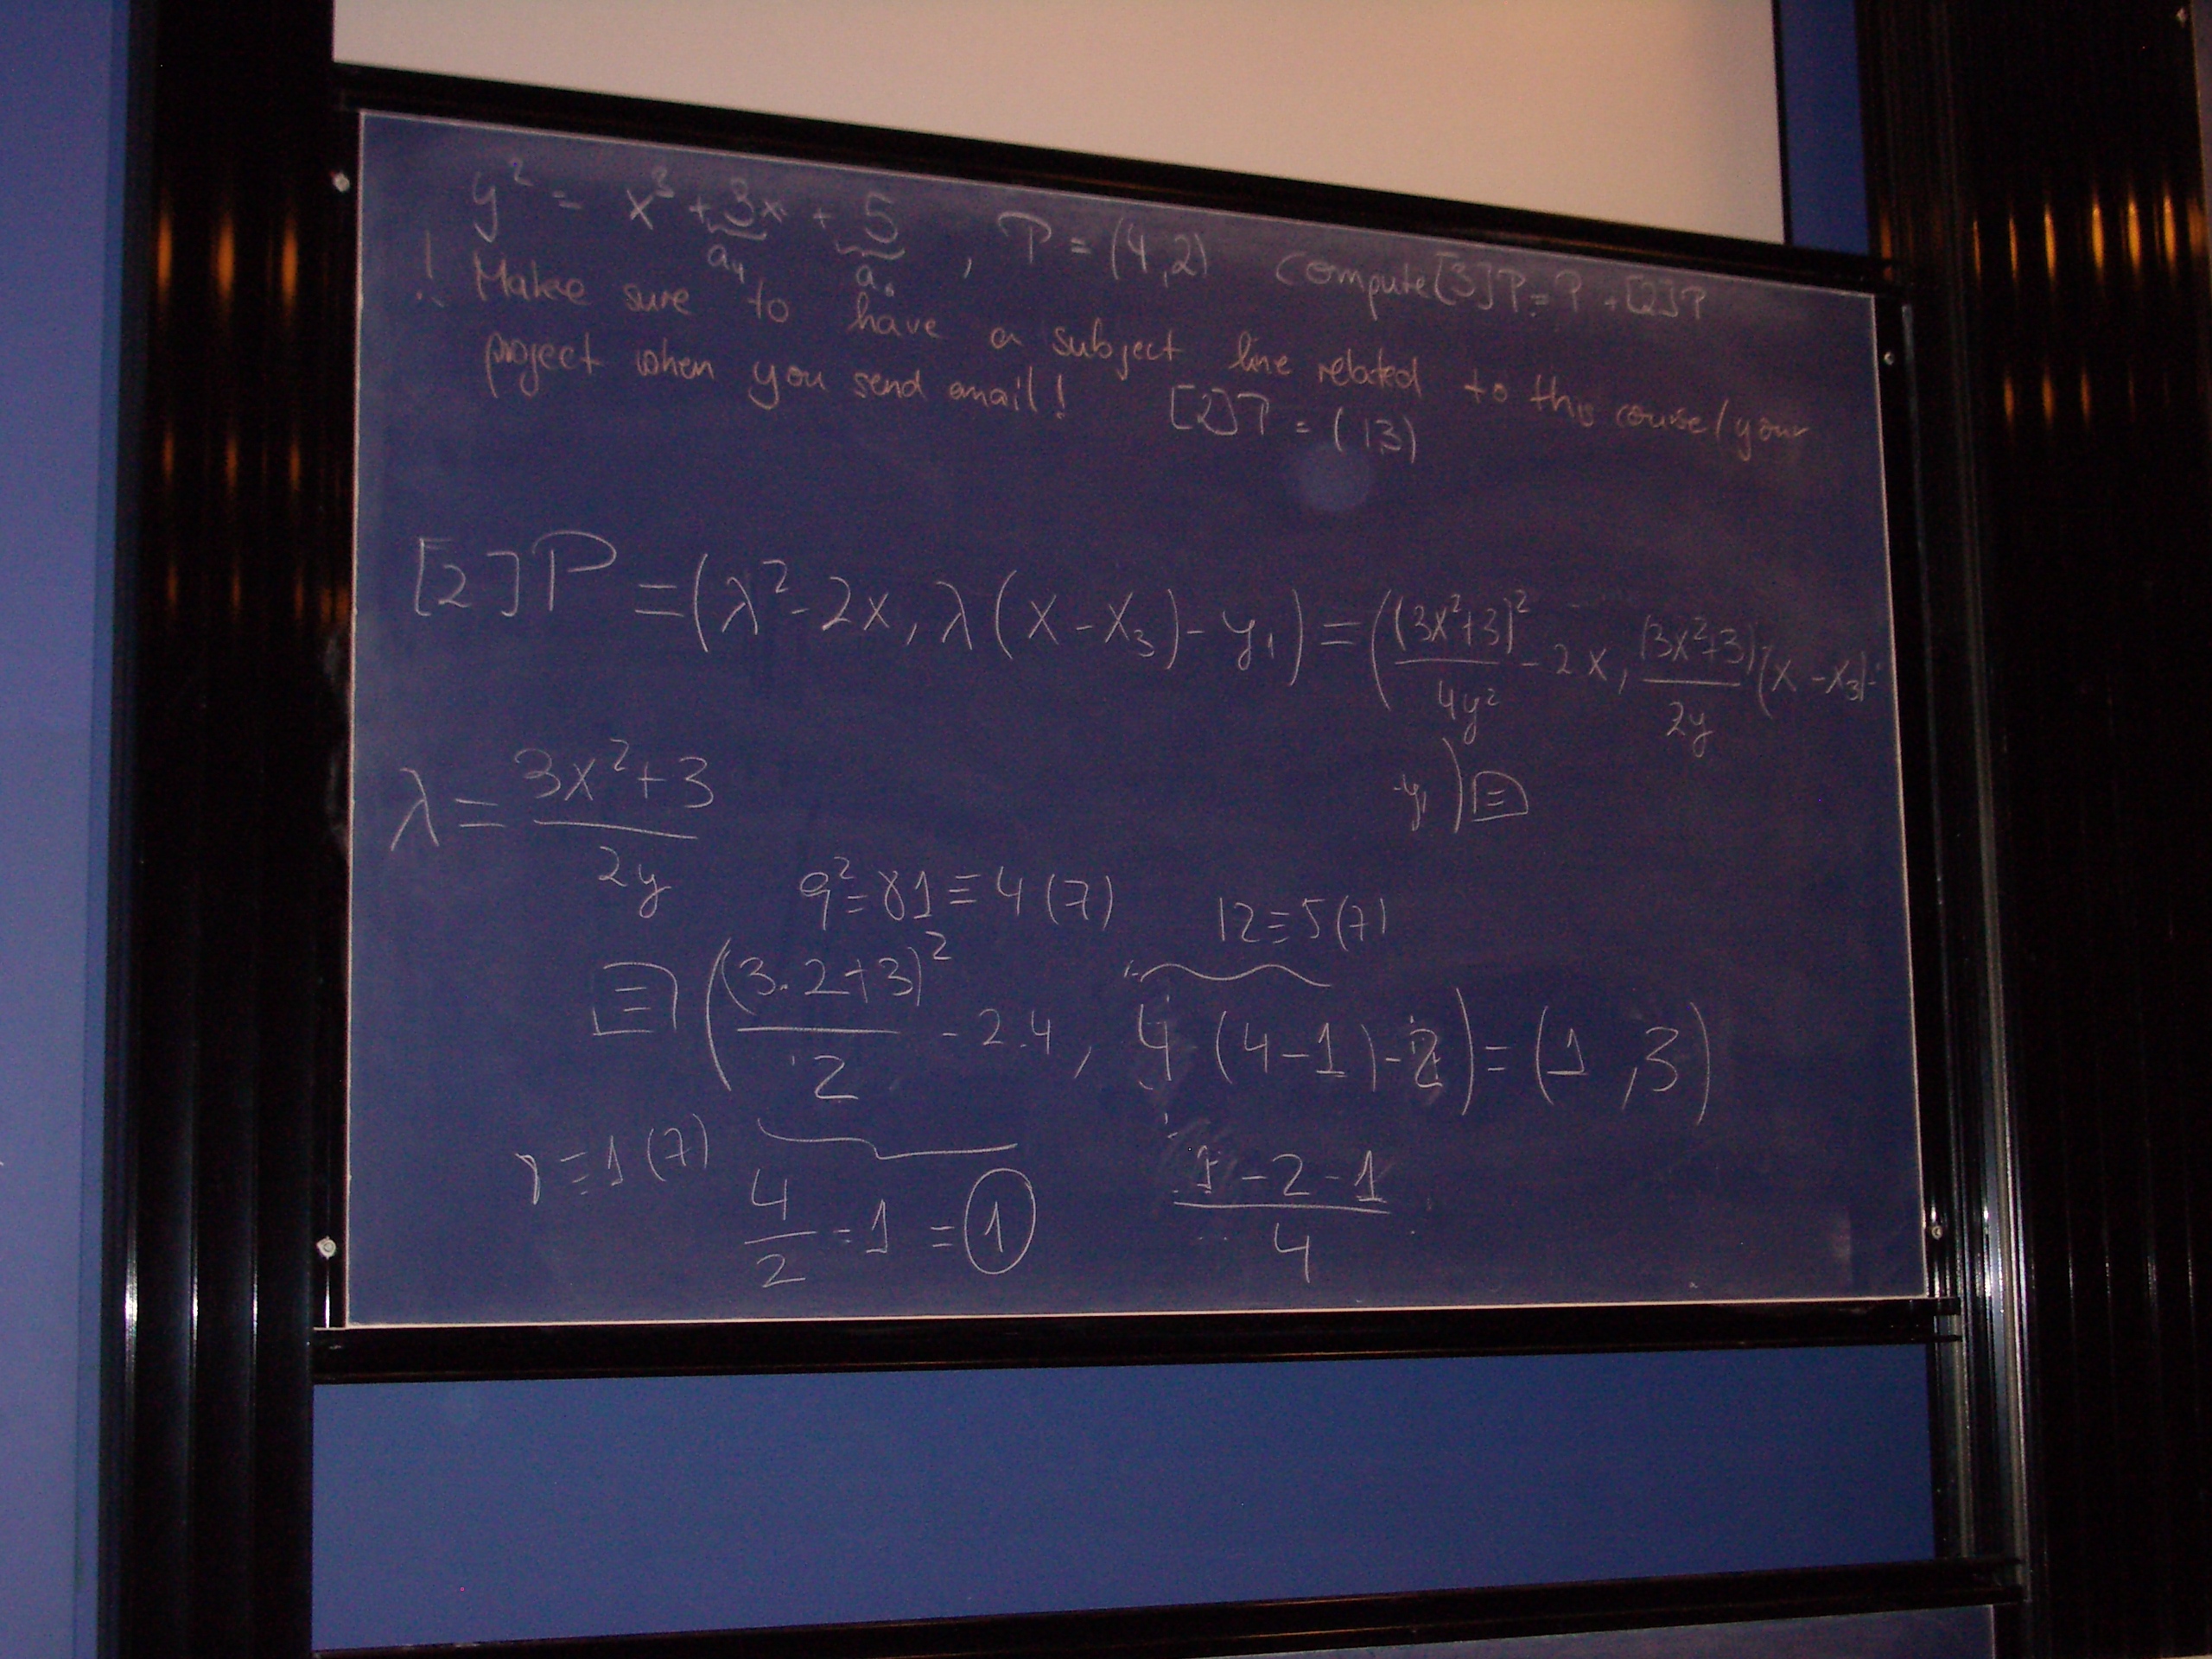 y² = x³ + 3x + 5 , P = (4,2) Compute [3]P = P + [2]P
a₄ a₆
! Make sure to have a subject line related to this course/your
project when you send email!
[2]P = (13)
[2]P = (λ² - 2x, λ(x - x₃) - y₁) = ((3x²+3)²/4y² - 2x, (3x²+3)/2y (x - x₃) -
- y₁) ≡
λ = 3x²+3/2y
9² = 81 ≡ 4 (7) 12 ≡ 5 (7)
≡ ((3·2+3)²/2 - 2·4, 4(4-1)-2) = (1, 3)
≡ 1 (7) 4/2 - 1 = 1 1-2-1/4